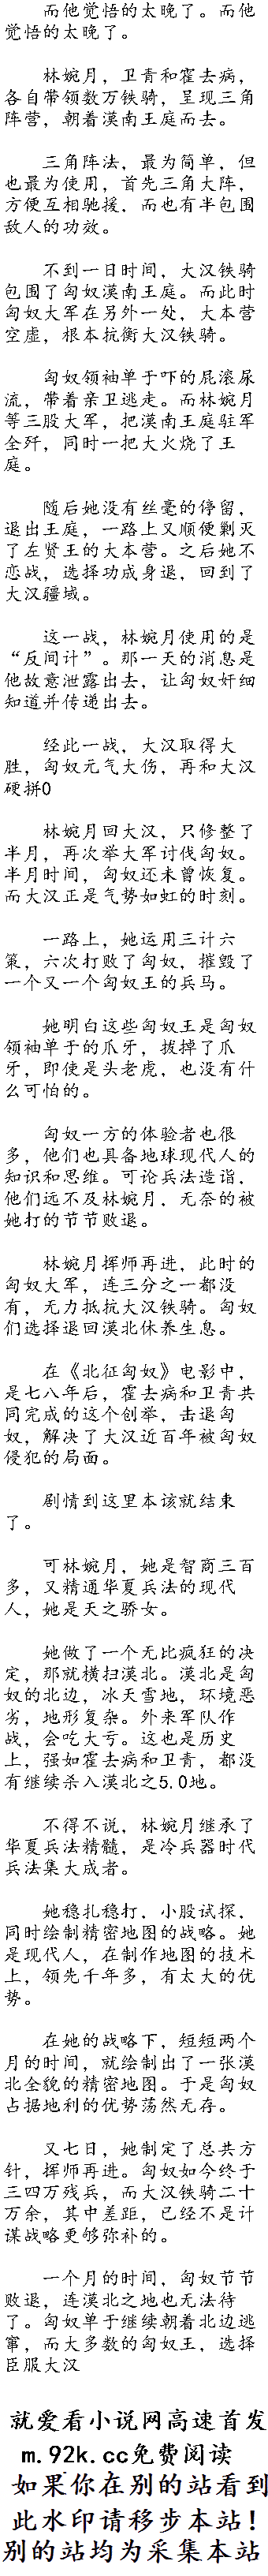 而他觉悟的太晚了。而他
觉悟的太晚了。
林婉月，卫青和霍去病，
各自带领数万铁骑，呈现三角
阵营，朝着漠南王庭而去。
三角阵法，最为简单，但
也最为使用，首先三角大阵，
方便互相驰援，而也有半包围
敌人的功效。
不到一日时间，大汉铁骑
包围了匈奴漠南王庭。而此时
匈奴大军在另外一处，大本营
空虚，根本抗衡大汉铁骑。
匈奴领袖单于吓的屁滚尿
流，带着亲卫逃走。而林婉月
等三股大军，把漠南王庭驻军
全歼，同时一把大火烧了王
庭。
随后她没有丝毫的停留，
退出王庭，一路上又顺便剿灭
了左贤王的大本营。之后她不
恋战，选择功成身退，回到了
大汉疆域。
这一战，林婉月使用的是
“反间计”。那一天的消息是
他故意泄露出去，让匈奴奸细
知道并传递出去。
经此一战，大汉取得大
胜，匈奴元气大伤，再和大汉
硬拼0
林婉月回大汉，只修整了
半月，再次举大军讨伐匈奴。
半月时间，匈奴还未曾恢复。
而大汉正是气势如虹的时刻。
一路上，她运用三计六
策，六次打败了匈奴，摧毁了
一个又一个匈奴王的兵马。
她明白这些匈奴王是匈奴
领袖单于的爪牙，拔掉了爪
牙，即使是头老虎，也没有什
么可怕的。
匈奴一方的体验者也很
多，他们也具备地球现代人的
知识和思维。可论兵法造诣，
他们远不及林婉月，无奈的被
她打的节节败退。
林婉月挥师再进，此时的
匈奴大军，连三分之一都没
有，无力抵抗大汉铁骑。匈奴
们选择退回漠北休养生息。
在《北征匈奴》电影中，
是七八年后，霍去病和卫青共
同完成的这个创举，击退匈
奴，解决了大汉近百年被匈奴
侵犯的局面。
剧情到这里本该就结束
了。
可林婉月，她是智商三百
多，又精通华夏兵法的现代
人，她是天之骄女。
她做了一个无比疯狂的决
定，那就横扫漠北。漠北是匈
奴的北边，冰天雪地，环境恶
劣，地形复杂。外来军队作
战，会吃大亏。这也是历史
上，强如霍去病和卫青，都没
有继续杀入漠北之5.0地。
不得不说，林婉月继承了
华夏兵法精髓，是冷兵器时代
兵法集大成者。
她稳扎稳打，小股试探，
同时绘制精密地图的战略。她
是现代人，在制作地图的技术
上，领先千年多，有太大的优
势。
在她的战略下，短短两个
月的时间，就绘制出了一张漠
北全貌的精密地图。于是匈奴
占据地利的优势荡然无存。
又七日，她制定了总共方
针，挥师再进。匈奴如今终于
三四万残兵，而大汉铁骑二十
万余，其中差距，已经不是计
谋战略更够弥补的。
一个月的时间，匈奴节节
败退，连漠北之地也无法待
了。匈奴单于继续朝着北边逃
窜，而大多数的匈奴王，选择
臣服大汉
就爱看小说网高速首发
m.92k.cc免费阅读
如果你在别的站看到
此水印请移步本站！
别的站均为采集本站